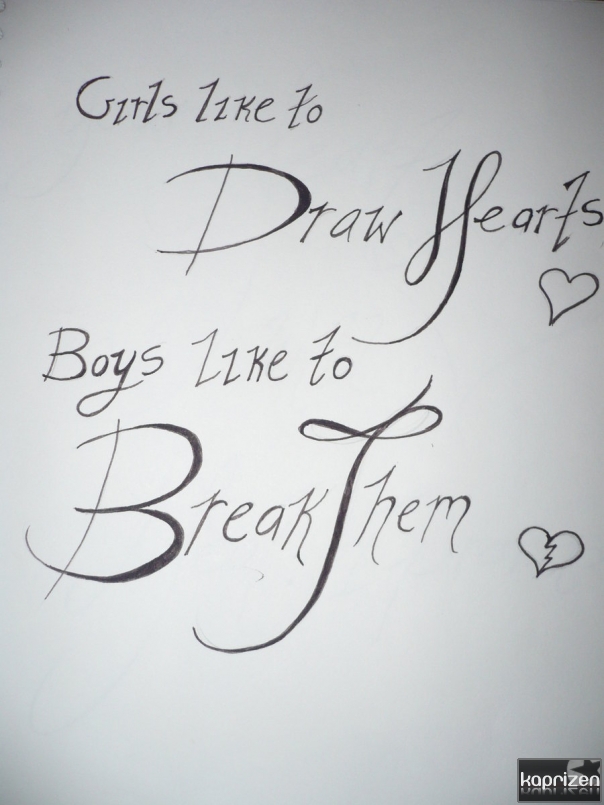 Girls like to
Draw Hearts
Boys like to
Break Them
kaprizen